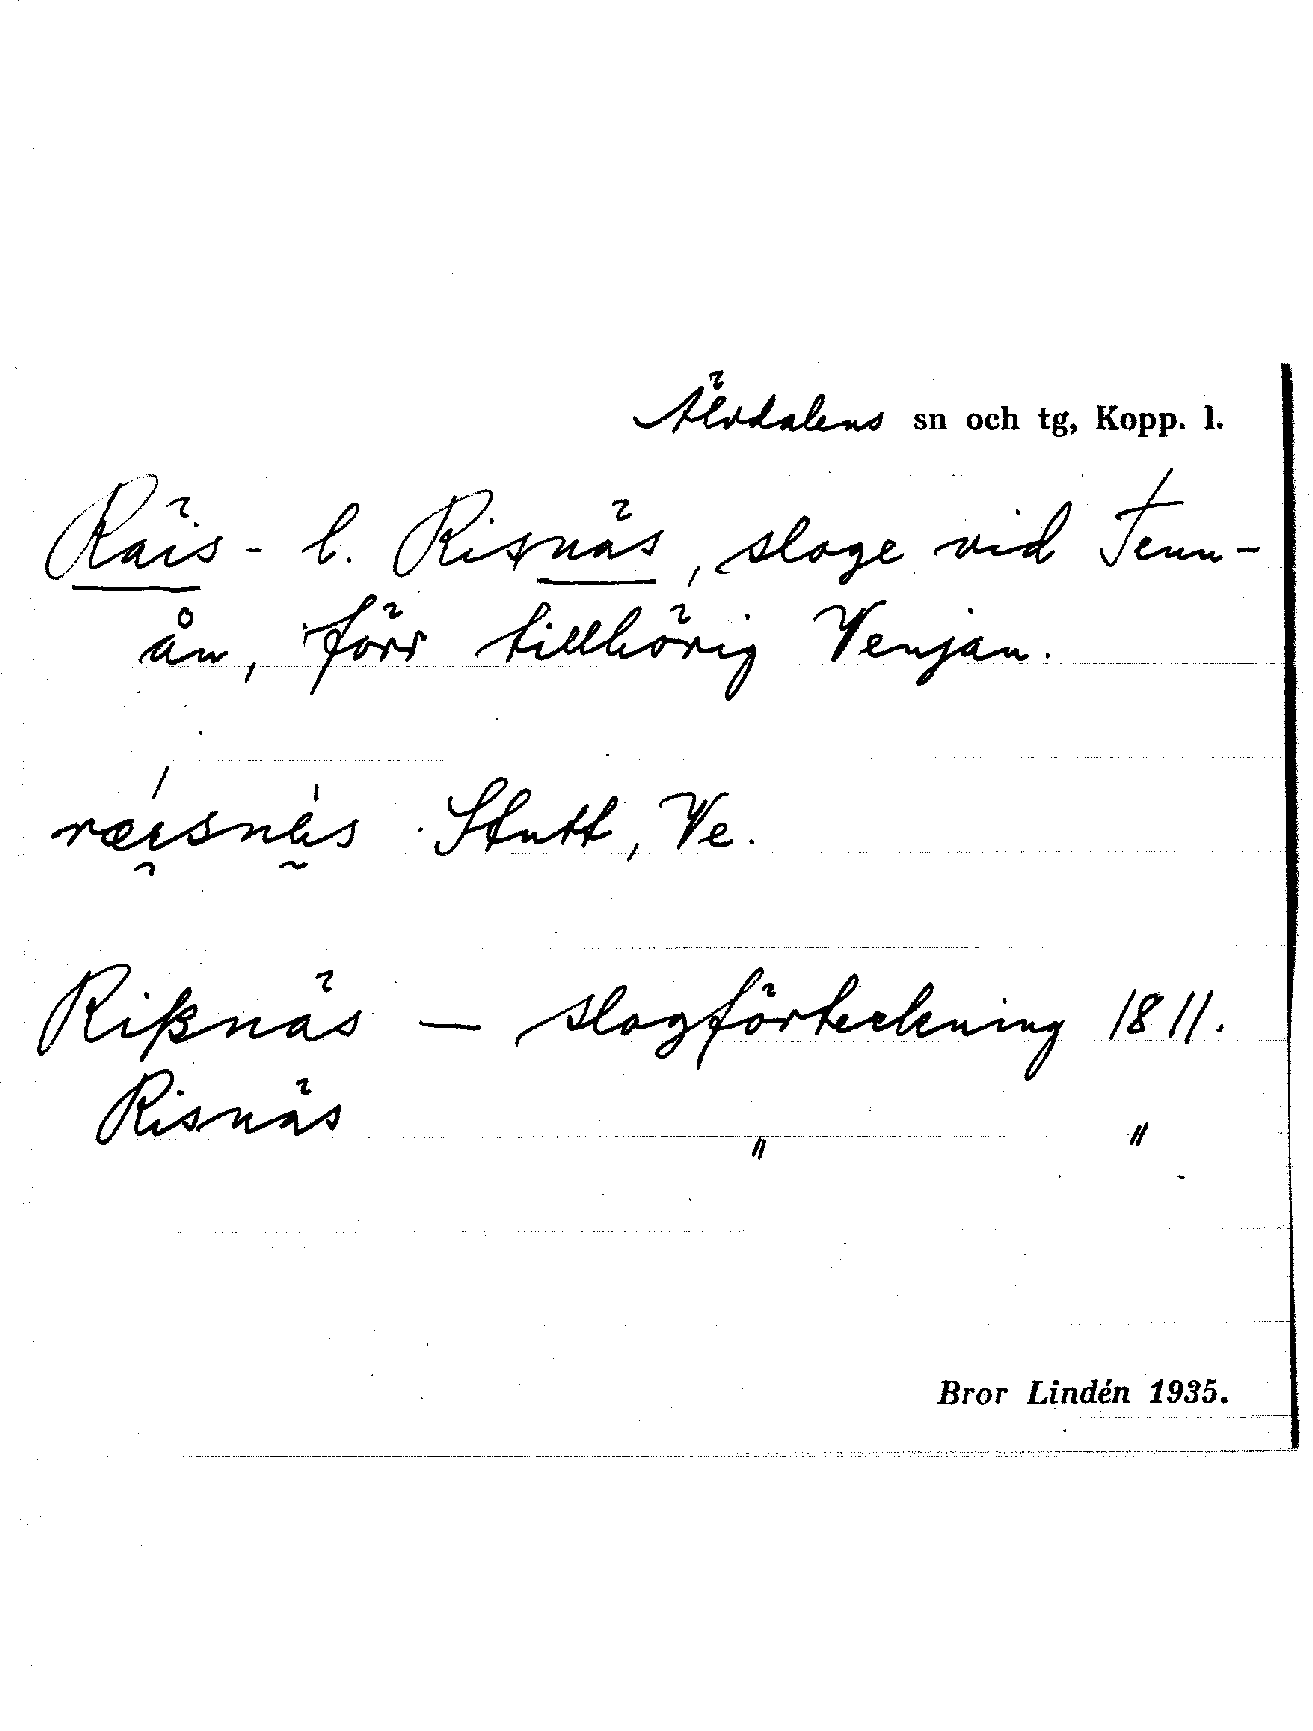 Älvdalens sn och tg, Kopp. l.
Räis- l. Risnäs, sloge vid Tenn-
ån, förr tillhörig Venjan.
ræisnäs Stutt, Ve.
Rißnäs — slogförteckning 1811.
Risnäs " "
Bror Lindén 1935.